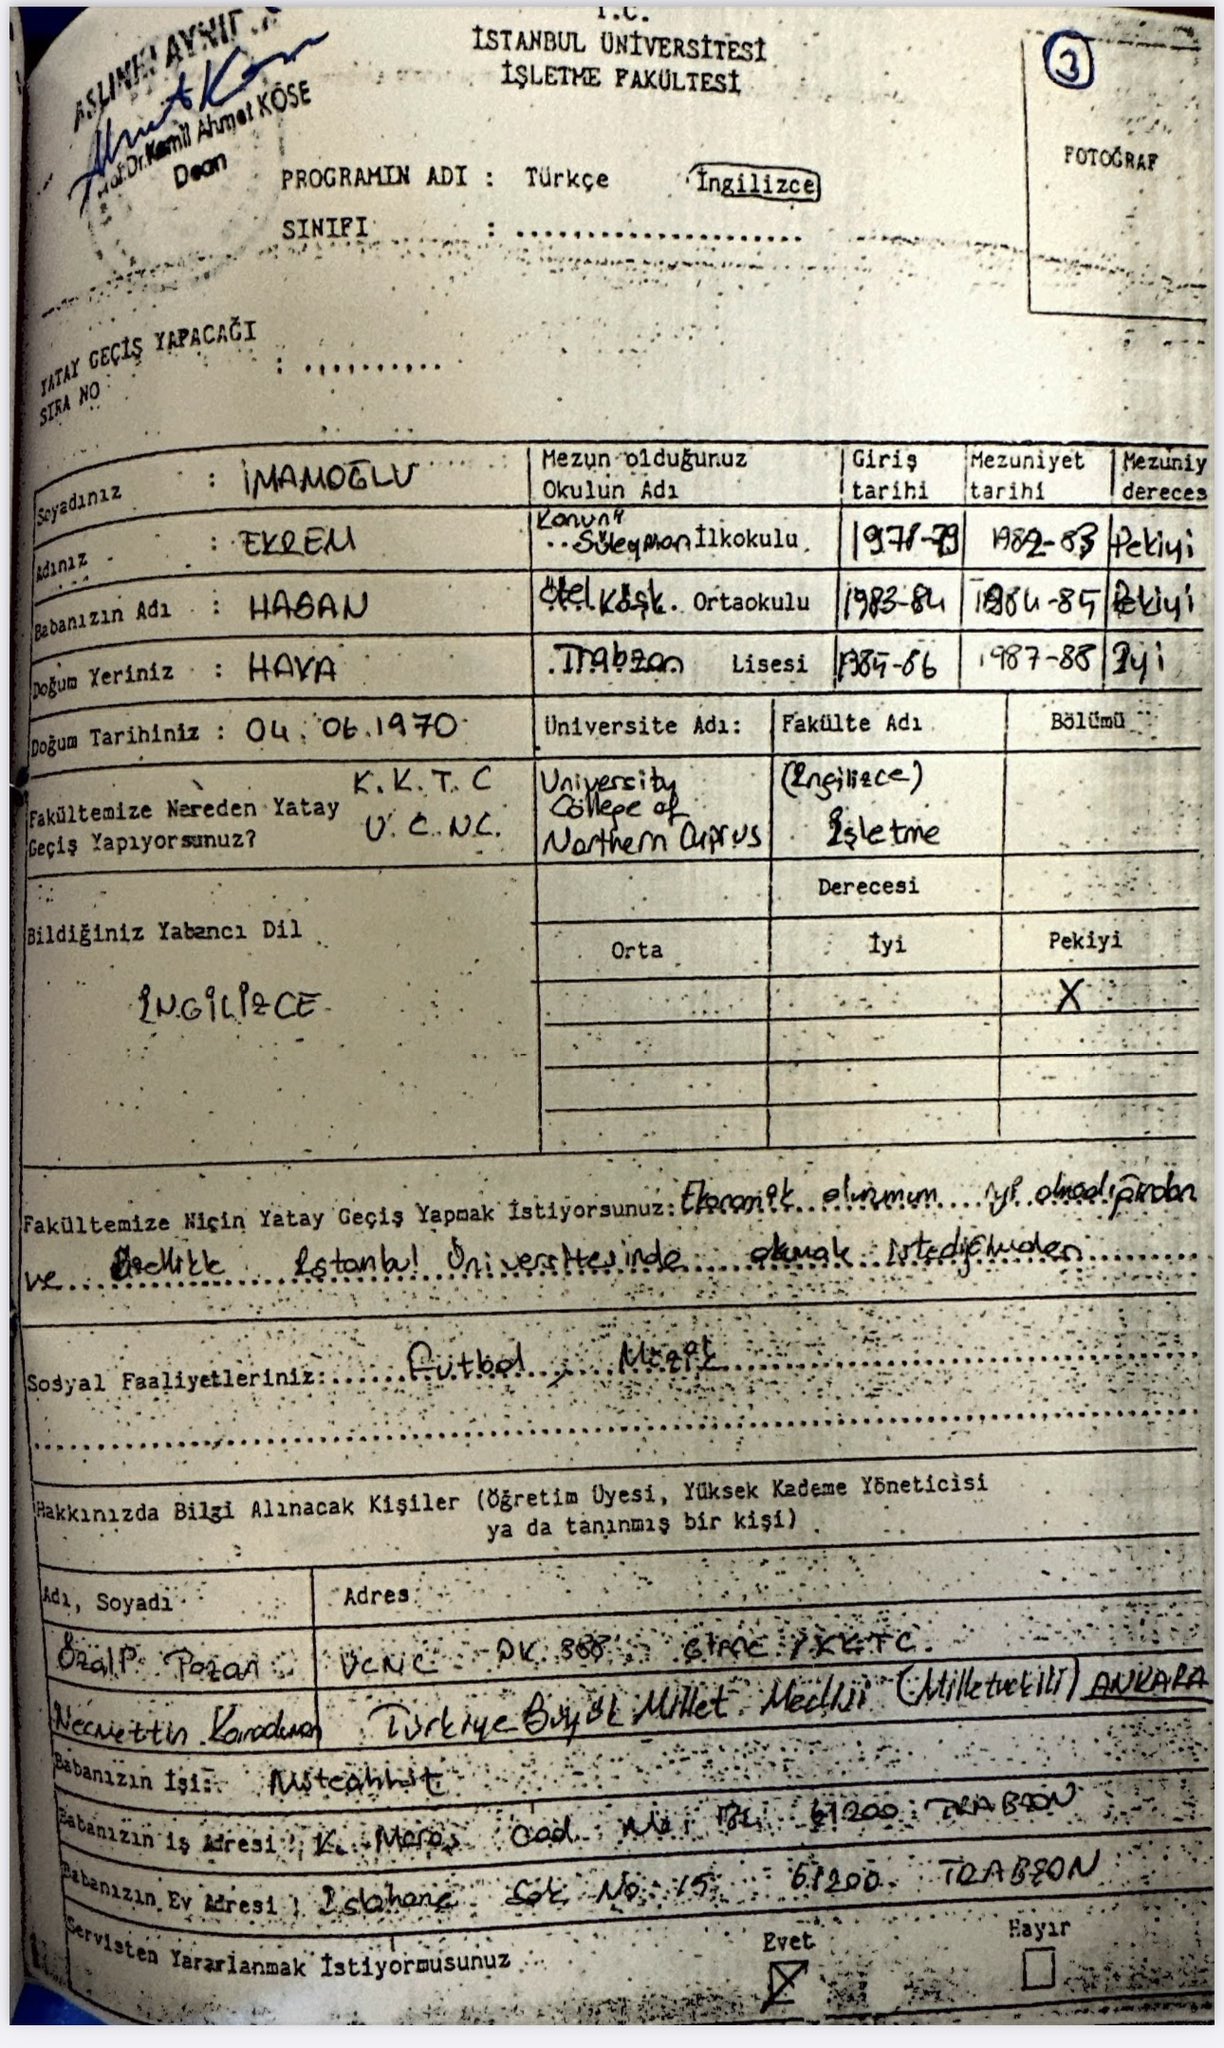 ASLININ AYNIDIR
Prof.Dr.Kamil Ahmet KÖSE
Dean
T.C.
İSTANBUL ÜNİVERSİTESİ
İŞLETME FAKÜLTESİ
3
FOTOĞRAF
PROGRAMIN ADI : Türkçe İngilizce
SINIFI : ......................
YATAY GEÇİŞ YAPACAĞI
SIRA NO : ..........
Soyadınız : İMAMOĞLU Mezun olduğunuz Okulun Adı Giriş tarihi Mezuniyet tarihi Mezuniy dereces
Adınız : EKREM Kanuni Süleyman İlkokulu 1978-79 1982-83 Pekiyi
Babanızın Adı : HASAN Özel Köşk Ortaokulu 1983-84 1984-85 Pekiyi
Doğum Yeriniz : HAVA Trabzon Lisesi 1985-86 1987-88 İyi
Doğum Tarihiniz : 04.06.1970 Üniversite Adı: Fakülte Adı Bölümü
Fakültemize Nereden Yatay Geçiş Yapıyorsunuz? K.K.T.C U.C.N.C. University College of Northern Cyprus (İngilizce) İşletme
Derecesi
Bildiğiniz Yabancı Dil Orta İyi Pekiyi
İNGİLİZCE X
Fakültemize Niçin Yatay Geçiş Yapmak İstiyorsunuz: Ekonomik durumum iyi olmadığından
ve özellikle İstanbul Üniversitesinde okumak istediğimden
Sosyal Faaliyetleriniz: Futbol, Müzik
Hakkınızda Bilgi Alınacak Kişiler (Öğretim Üyesi, Yüksek Kademe Yöneticisi
ya da tanınmış bir kişi)
Adı, Soyadı Adres
Özalp Pozan UCNC PK 388 GİRNE / KKTC.
Necmettin Karaduman Türkiye Büyük Millet Meclisi (Milletvekili) ANKARA
Babanızın İşi: Müteahhit
Babanızın İş Adresi : K. Maraş Cad. No: 61200 TRABZON
Babanızın Ev Adresi : Sok No 15 61200 TRABZON
Servisten Yararlanmak İstiyormusunuz Evet Hayır